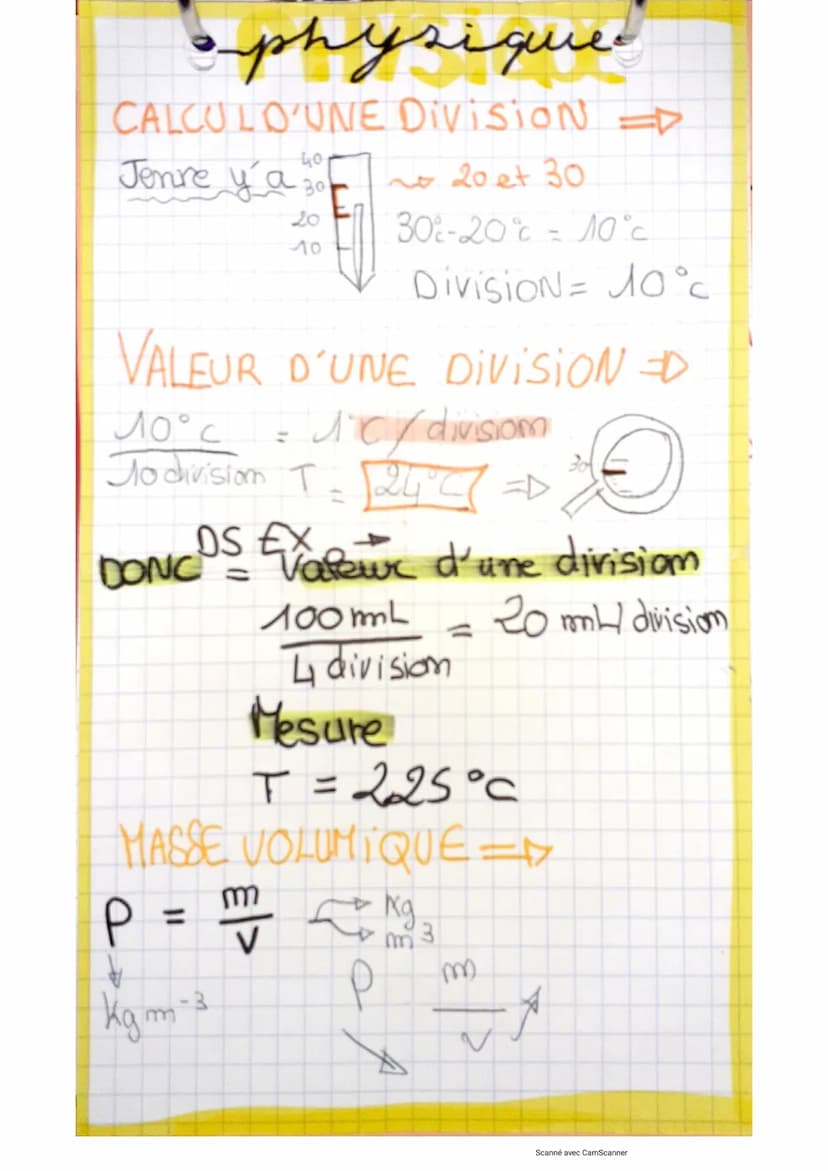 physique
PHYSIQUE
CALCUL D'UNE DiViSiON ⇒
Jenre y'a 40 ~> 20 et 30
30
20 30°c-20°c = 10°c
10
DiViSiON = 10°c
VALEUR D'UNE DiViSiON ⇒
10°c = 1°C / division
10 division T = 24°C ⇒ 30
DS EX →
DONC = Valeur d'une division
100 mL = 20 mL/ division
4 division
Mesure
T = 225 °c
MASSE VOLUMiQUE ⇒
ρ = m → kg
v → m³
↓
kg m⁻³
ρ m
v
Scanné avec CamScanner